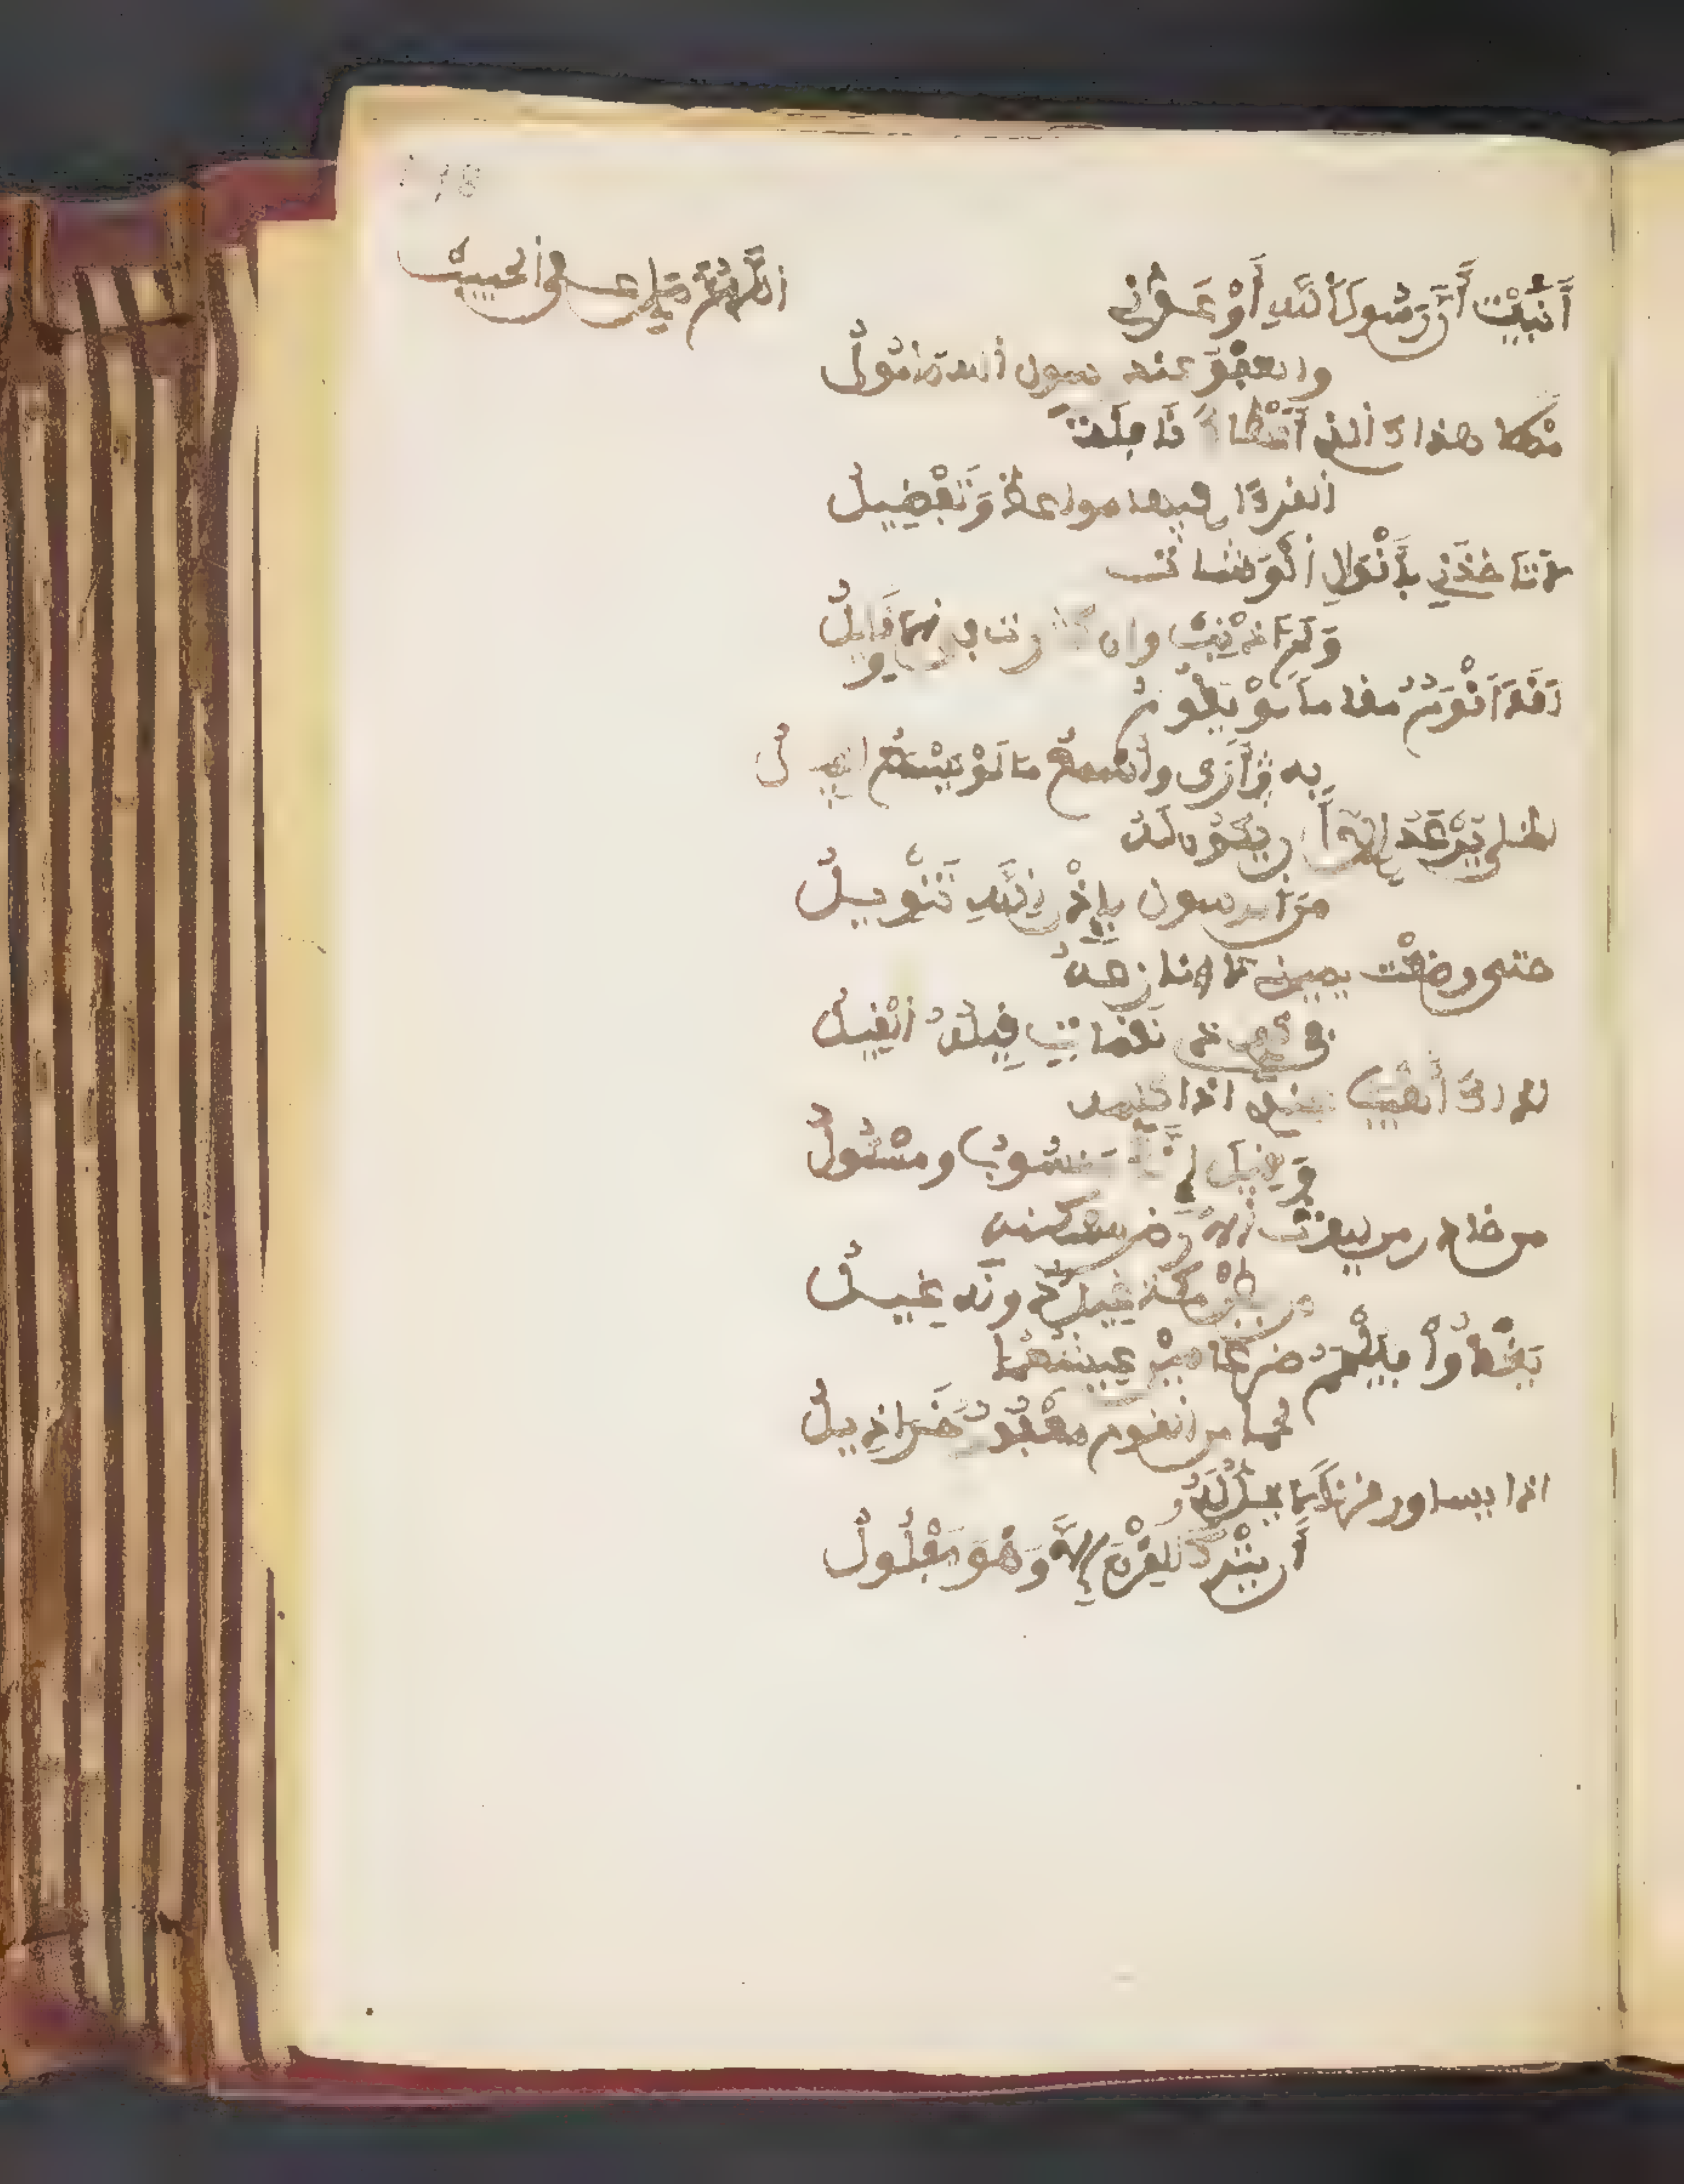 أنبيت أن رسول الله أوعدني
اللهم صل على الحبيب
والعفو عند رسول الله مامول
مهلا هداك الذي أعطاك نافلة
القرءان فيها مواعظ وتفصيل
لا تاخذني بأقوال الوشات
ولم اذنب وان كثرت في الاقاويل
لقد اقوم مقاما لو يقوم
به أرى وأسمع ما لو يسمع الفيل
لظل يرعد إلا أن يكون له
من الرسول بإذن الله تنويل
حتى وضعت يميني لا انازعه
في كف ذي نقمات قيله القيل
لذاك أهيب عندي اذا اكلمه
وقيل إنك منسوب ومسئول
من خادر من ليوث الارض مسكنه
من بطن مكة غيل دونه غيل
يغدوا فيلحم ضرغامين عيشهما
لحم من القوم معفور خراذيل
اذا يساور قرنا لا يحل له
أن يترك القرن إلا وهو مفلول